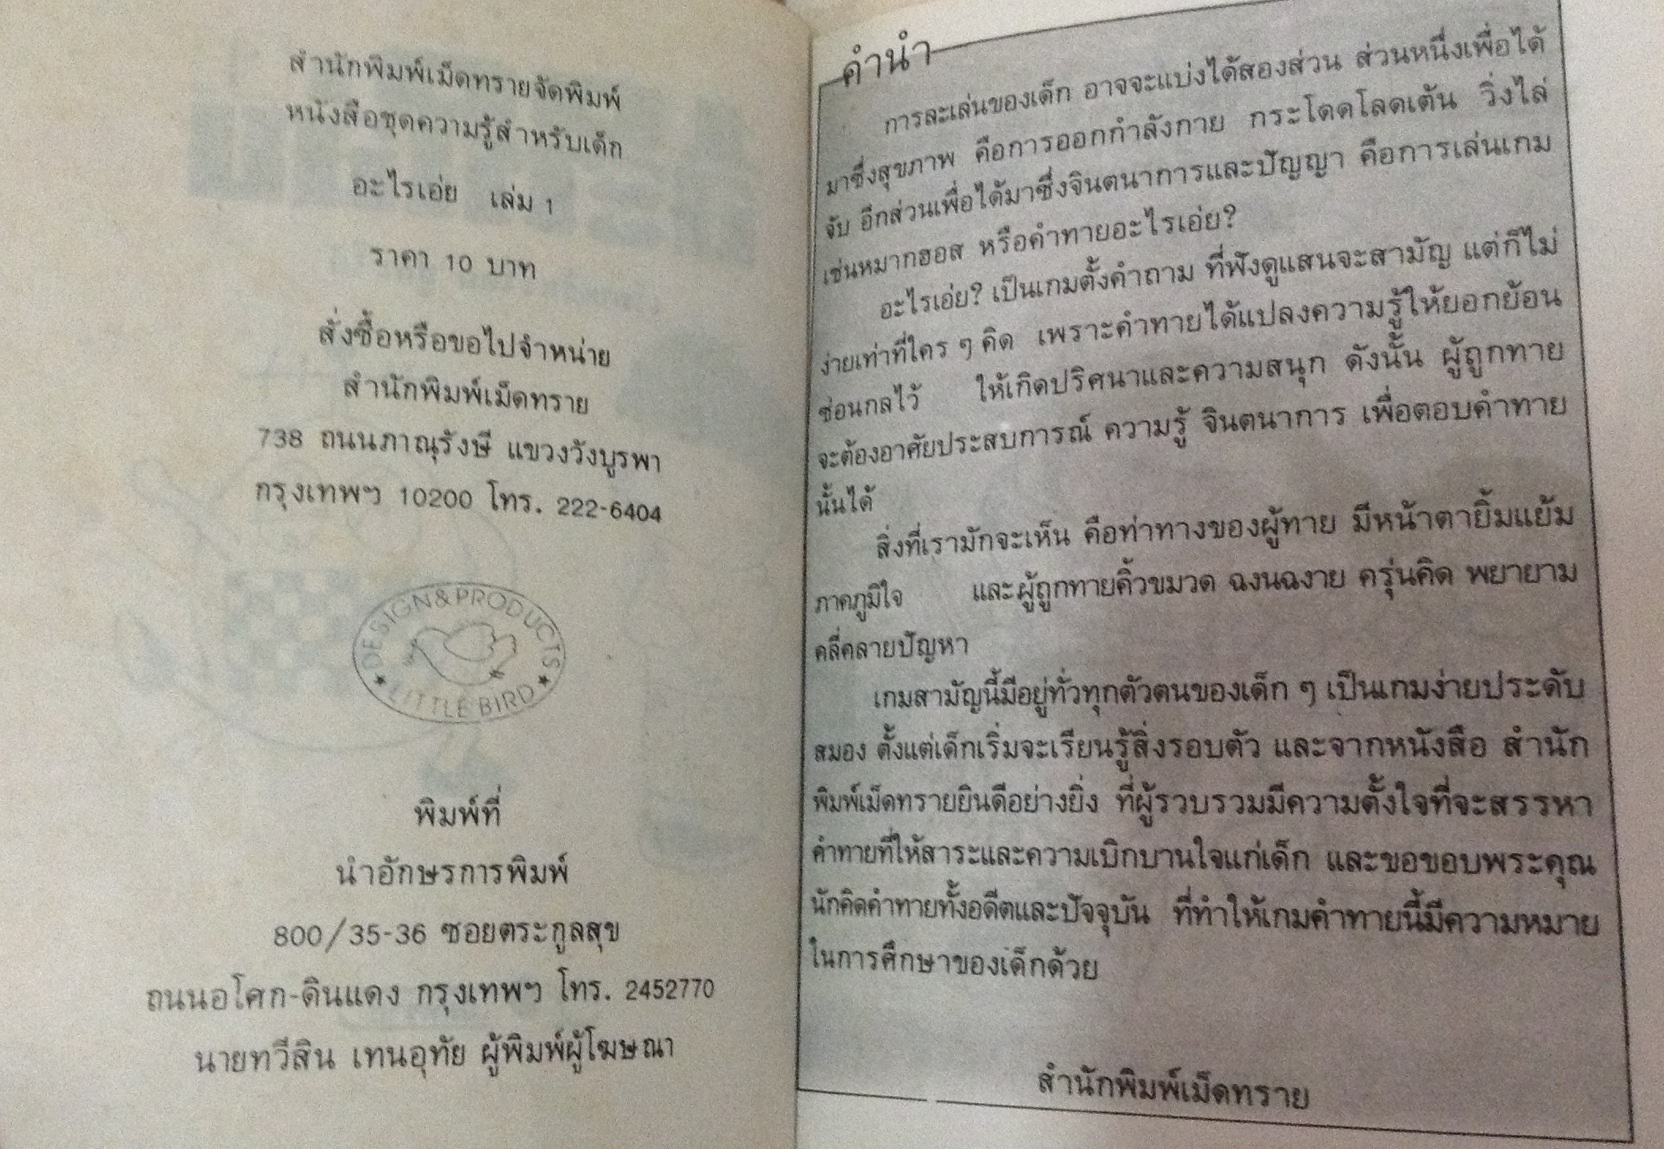 สำนักพิมพ์เม็ดทรายจัดพิมพ์
หนังสือชุดความรู้สำหรับเด็ก
อะไรเอ่ย เล่ม 1
ราคา 10 บาท
สั่งซื้อหรือขอไปจำหน่าย
สำนักพิมพ์เม็ดทราย
738 ถนนภาณุรังษี แขวงวังบูรพา
กรุงเทพฯ 10200 โทร. 222-6404
DESIGN & PRODUCTS
★ LITTLE BIRD ★
พิมพ์ที่
นำอักษรการพิมพ์
800/35-36 ซอยตระกูลสุข
ถนนอโศก-ดินแดง กรุงเทพฯ โทร. 2452770
นายทวีสิน เทนอุทัย ผู้พิมพ์ผู้โฆษณา
คำนำ
การละเล่นของเด็ก อาจจะแบ่งได้สองส่วน ส่วนหนึ่งเพื่อได้
มาซึ่งสุขภาพ คือการออกกำลังกาย กระโดดโลดเต้น วิ่งไล่
จับ อีกส่วนเพื่อได้มาซึ่งจินตนาการและปัญญา คือการเล่นเกม
เช่นหมากฮอส หรือคำทายอะไรเอ่ย?
อะไรเอ่ย? เป็นเกมตั้งคำถาม ที่ฟังดูแสนจะสามัญ แต่ก็ไม่
ง่ายเท่าที่ใคร ๆ คิด เพราะคำทายได้แปลงความรู้ให้ยอกย้อน
ซ่อนกลไว้ ให้เกิดปริศนาและความสนุก ดังนั้น ผู้ถูกทาย
จะต้องอาศัยประสบการณ์ ความรู้ จินตนาการ เพื่อตอบคำทาย
นั้นได้
สิ่งที่เรามักจะเห็น คือท่าทางของผู้ทาย มีหน้าตายิ้มแย้ม
ภาคภูมิใจ และผู้ถูกทายคิ้วขมวด ฉงนฉงาย ครุ่นคิด พยายาม
คลี่คลายปัญหา
เกมสามัญนี้มีอยู่ทั่วทุกตัวตนของเด็ก ๆ เป็นเกมง่ายประดับ
สมอง ตั้งแต่เด็กเริ่มจะเรียนรู้สิ่งรอบตัว และจากหนังสือ สำนัก
พิมพ์เม็ดทรายยินดีอย่างยิ่ง ที่ผู้รวบรวมมีความตั้งใจที่จะสรรหา
คำทายที่ให้สาระและความเบิกบานใจแก่เด็ก และขอขอบพระคุณ
นักคิดคำทายทั้งอดีตและปัจจุบัน ที่ทำให้เกมคำทายนี้มีความหมาย
ในการศึกษาของเด็กด้วย
สำนักพิมพ์เม็ดทราย